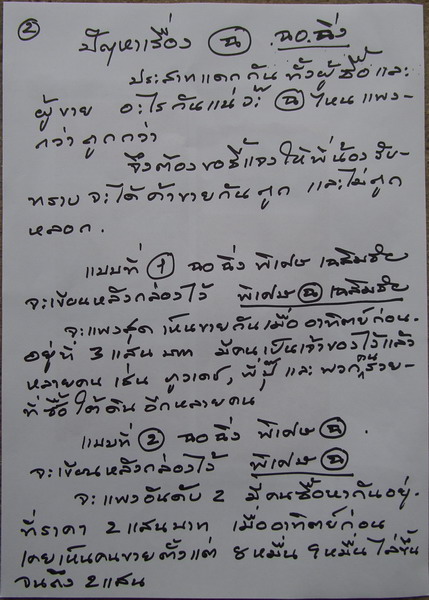 ②
ปัญหาเรื่อง ฉ ฉอ.ฉิ่ง
ประสาทแดกกัน ทั้งผู้ซื้อ และ
ผู้ขาย อะไรกันแน่จ๊ะ ฉ ไหนแพง-
กว่า ถูกกว่า
จึงต้องขอชี้แจงให้พี่น้องรับ-
ทราบ จะได้ค้าขายกันถูก และไม่ถูก
หลอก.
แบบที่ ① ฉอ ฉิ่ง พิเศษ เฉลิมชัย
จะเขียนหลังกล่องไว้ พิเศษ ฉ เฉลิมชัย
จะแพงสุด เห็นขายกันเมื่อ อาทิตย์ก่อน.
อยู่ที่ 3 แสน บาท มีคนเป็นเจ้าของไว้แล้ว
หลายคน เช่น ทูวเดช, พี่ปุ๊ และ พวก
ที่ซื้อ ใต้ดิน อีกหลายคน
แบบที่ ② ฉอ ฉิ่ง พิเศษ ฉ.
จะเขียนหลังกล่องไว้ พิเศษ ฉ
จะแพงอันดับ 2 มีคนซื้อหากันอยู่-
ที่ราคา 2 แสนบาท เมื่ออาทิตย์ก่อน
เคยเห็นคนขายตั้งแต่ 8 หมื่น 9 หมื่น ไล่ขึ้น
จนถึง 2 แสน